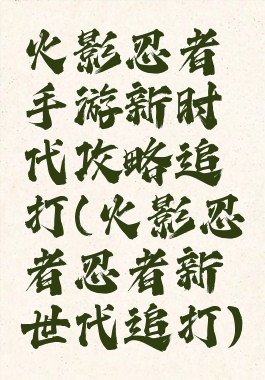 火影忍者
手游新时
代攻略追
打(火影忍
者忍者新
世代追打)